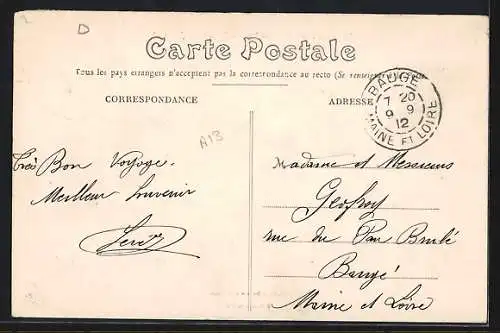 D
Carte Postale
Tous les pays étrangers n'acceptent pas la correspondance au recto (Se renseigner
CORRESPONDANCE
ADRESSE
BAUGÉ
7 20
9 9
12
MAINE ET LOIRE
A13
Très Bon Voyage.
Meilleur Souvenir
Madame et Messieurs
Geofroy
rue du Pau Brulé
Baugé
Maine et Loire